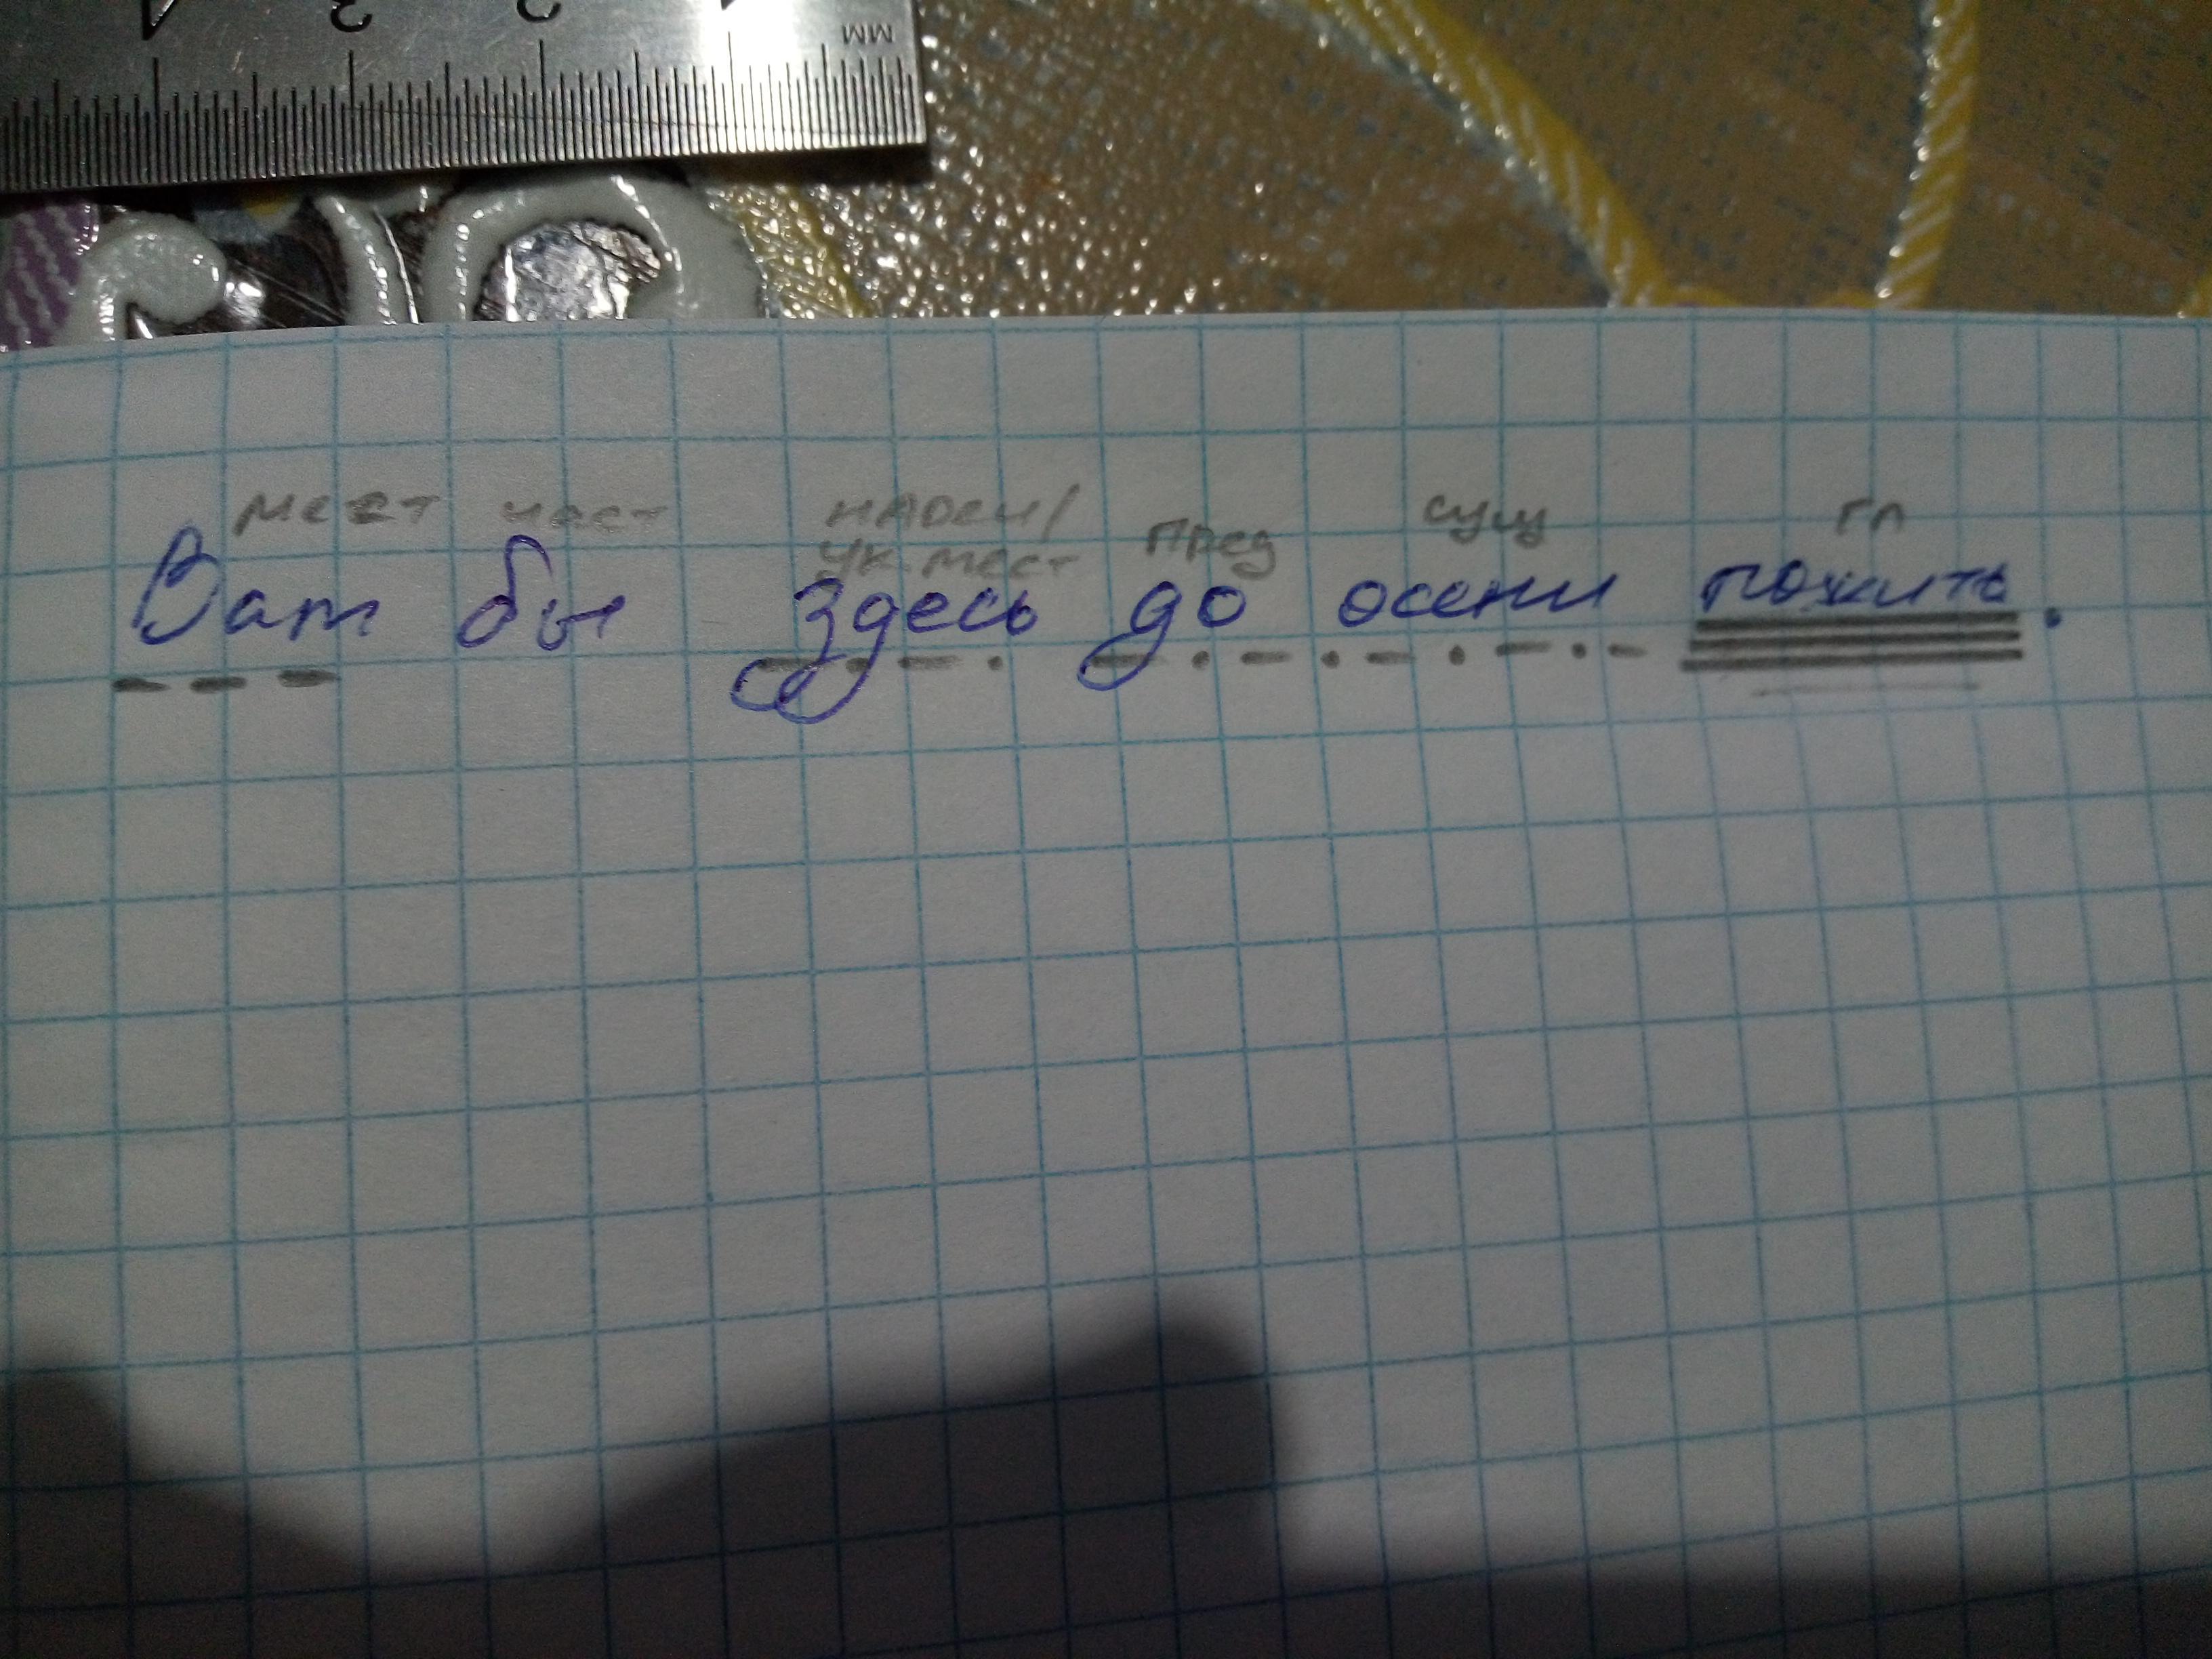 4 3 2 1 мм
мест част нареч/ пред сущ гл
ук. мест
Вам бы здесь до осени пожить.